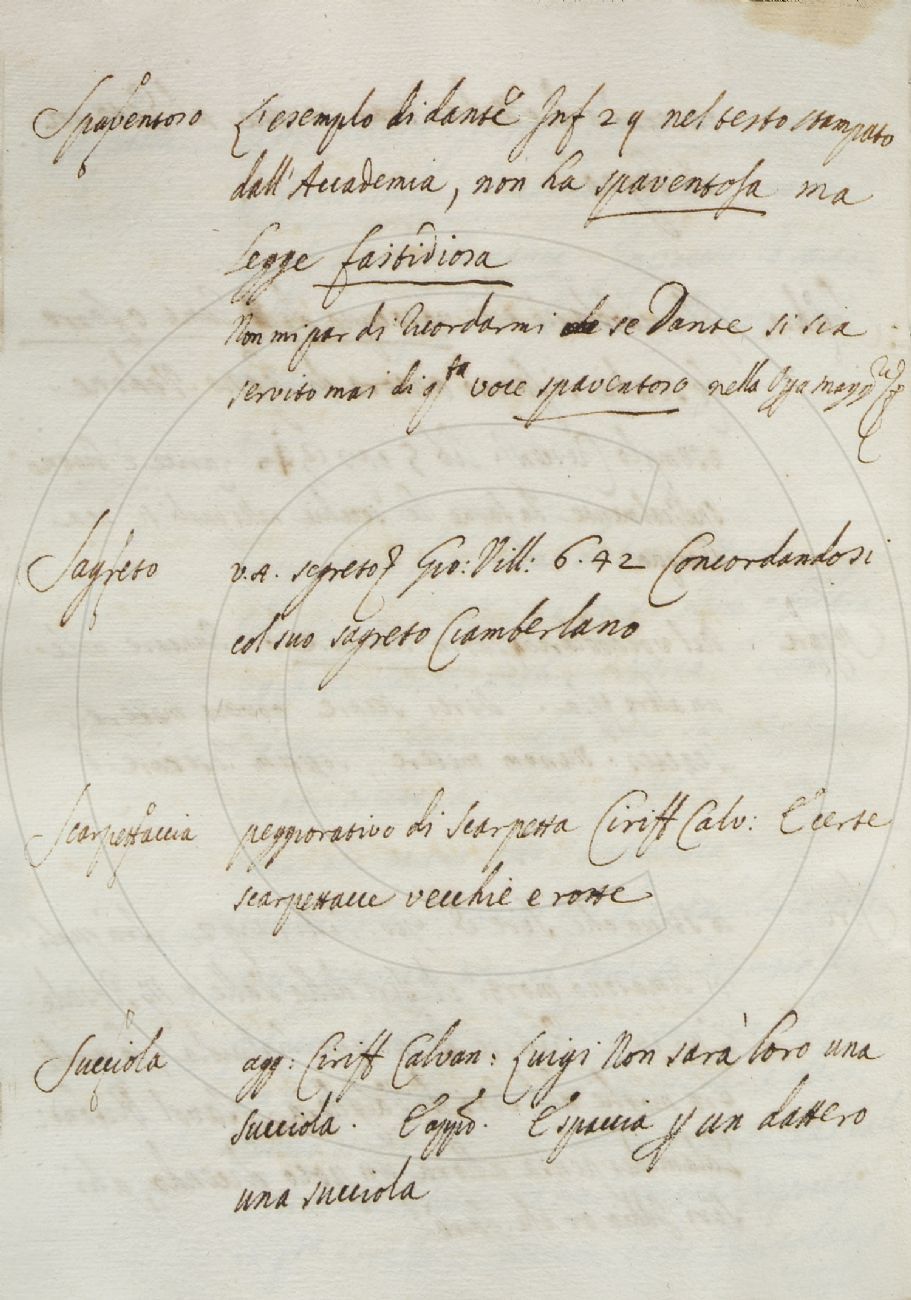 Spaventoso L'esemplo di dante Inf 29 nel testo stampato
dall'Accademia, non ha spaventosa ma
legge fastidiosa
Non mi par di ricordarmi se Dante si sia
servito mai di q.sta voce spaventoso nella
Sagreto v.A. segreto Gio: Vill: 6. 42 Concordandosi
col suo sagreto Ciamberlano
Scarpettaccia peggiorativo di scarpetta Ciriff Calv: E certe
scarpettacce vecchie e rotte
Succiola agg: Ciriff Calvan: Luigi Non sarà loro una
succiola. E appo. E spaccia p un dattero
una succiola